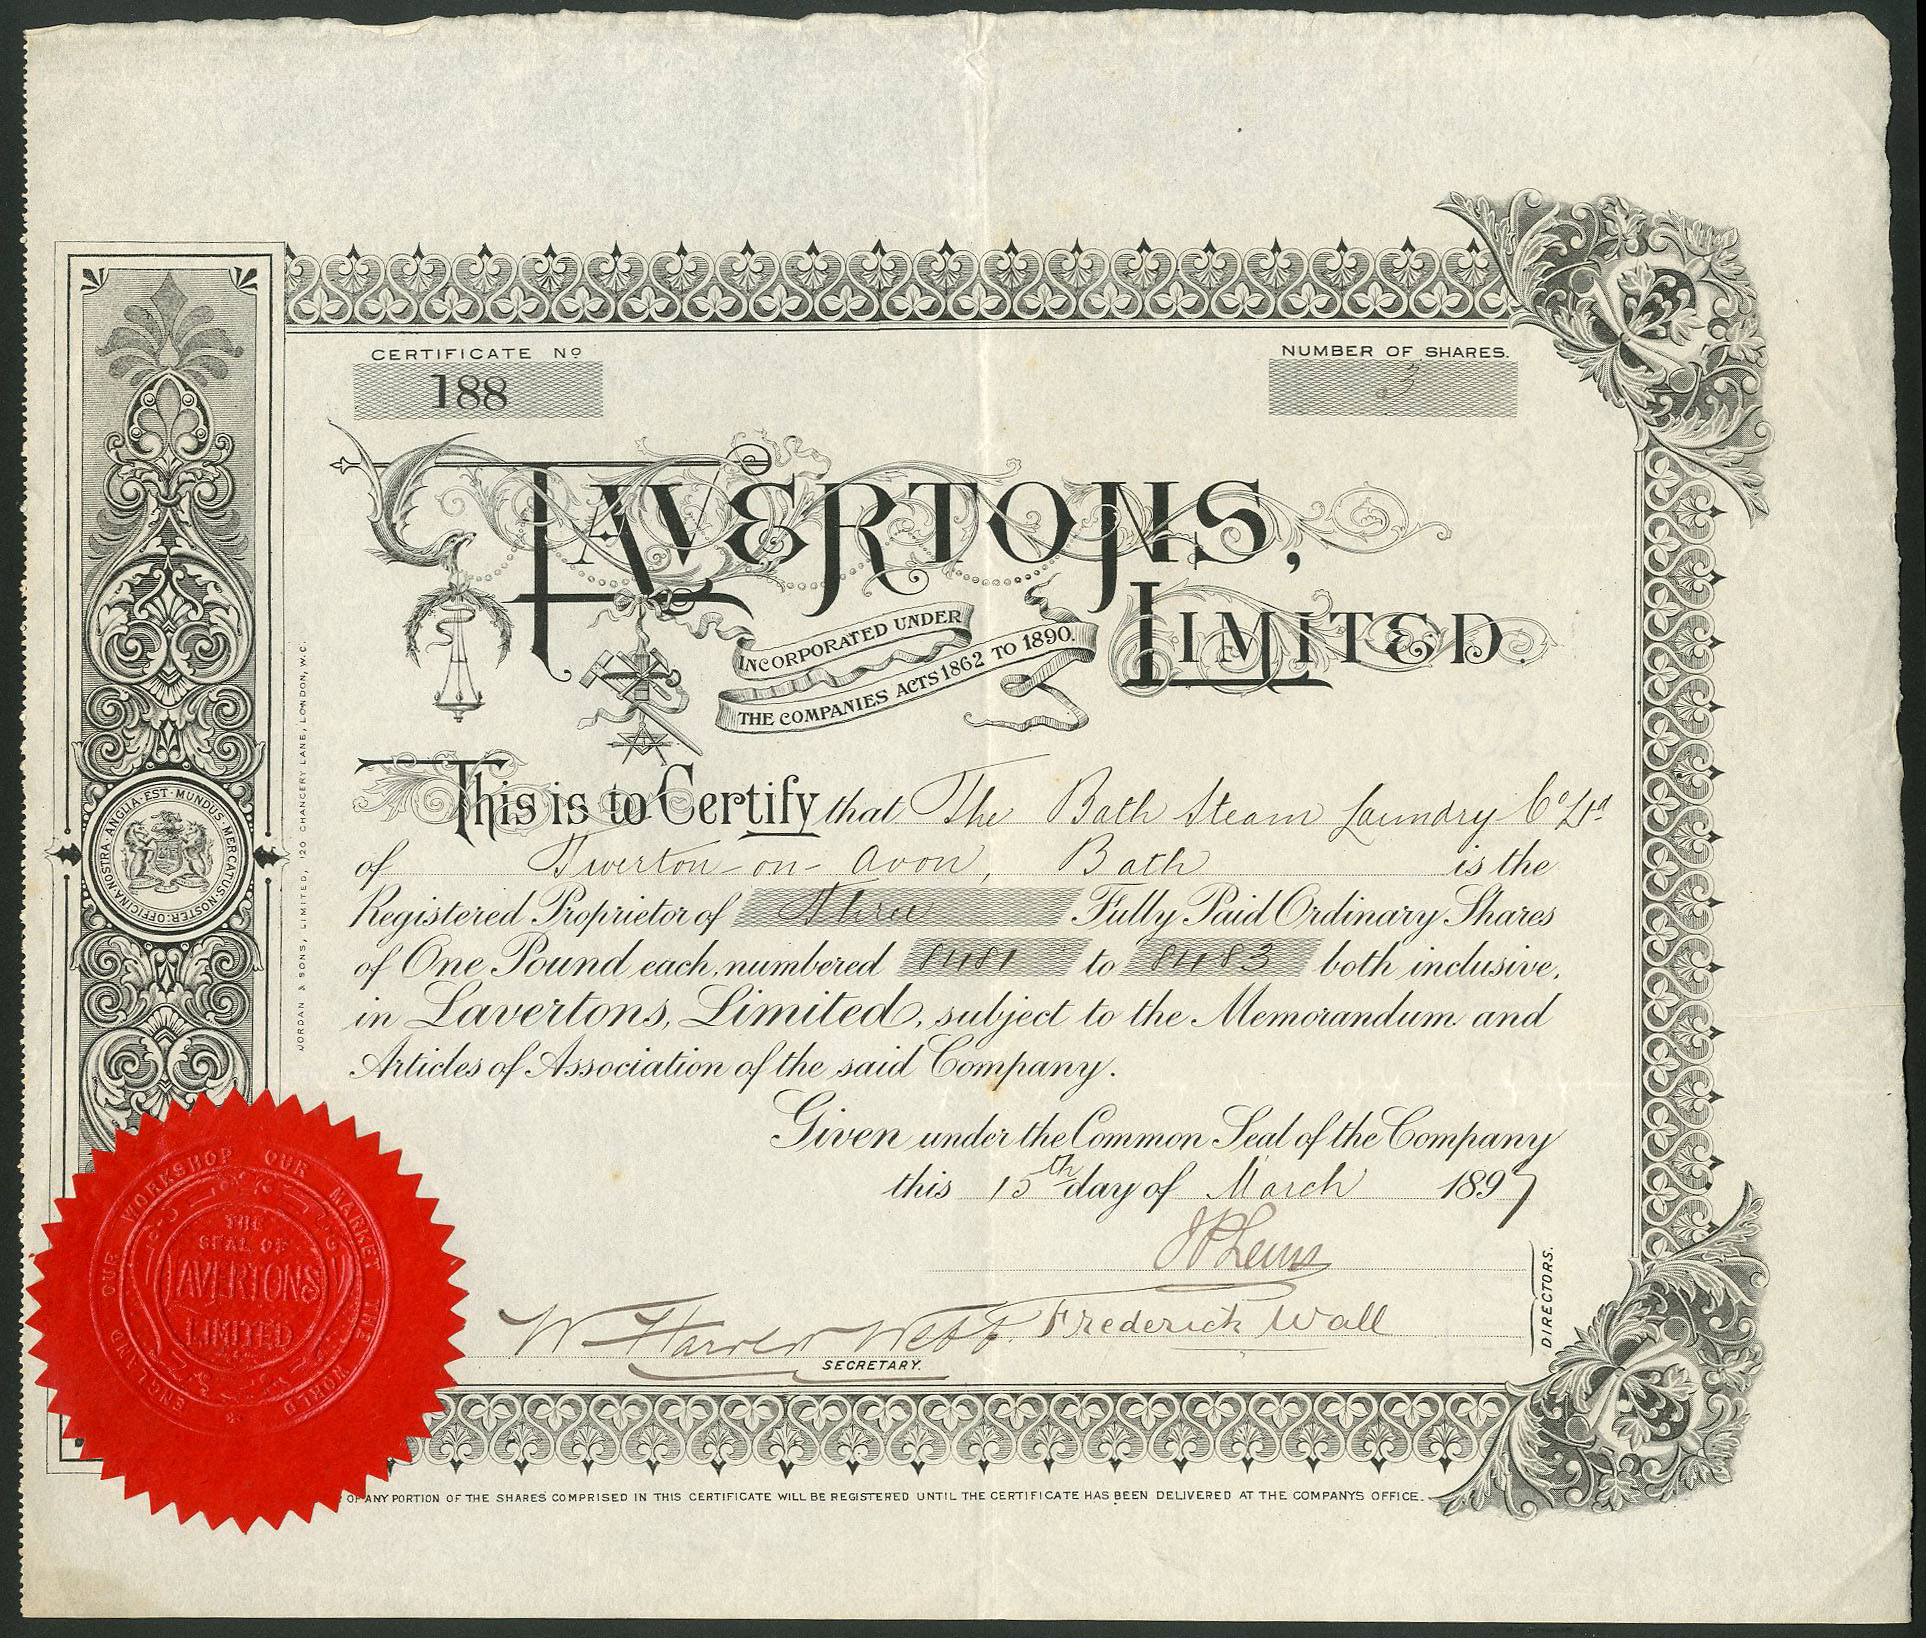 CERTIFICATE No
188
NUMBER OF SHARES.
3
LAVERTONS,
LIMITED.
INCORPORATED UNDER
THE COMPANIES ACTS 1862 TO 1890.
This is to Certify that The Bath Steam Laundry Co Ld
of Twerton-on-Avon, Bath is the
Registered Proprietor of Three Fully Paid Ordinary Shares
of One Pound each, numbered 8481 to 8483 both inclusive,
in Lavertons, Limited, subject to the Memorandum and
Articles of Association of the said Company.
Given under the Common Seal of the Company
this 15th day of March 1897
Frederick Wall
DIRECTORS.
W Harold Webb
SECRETARY.
OF ANY PORTION OF THE SHARES COMPRISED IN THIS CERTIFICATE WILL BE REGISTERED UNTIL THE CERTIFICATE HAS BEEN DELIVERED AT THE COMPANYS OFFICE.
JORDAN & SONS, LIMITED, 120 CHANCERY LANE, LONDON, W.C.
NOSTRA·ANGLIA·EST·MUNDUS·MERCATUS·NOSTER·OFFICINA
ENGLAND OUR WORKSHOP OUR MARKET THE WORLD
THE
SEAL OF
LAVERTONS
LIMITED